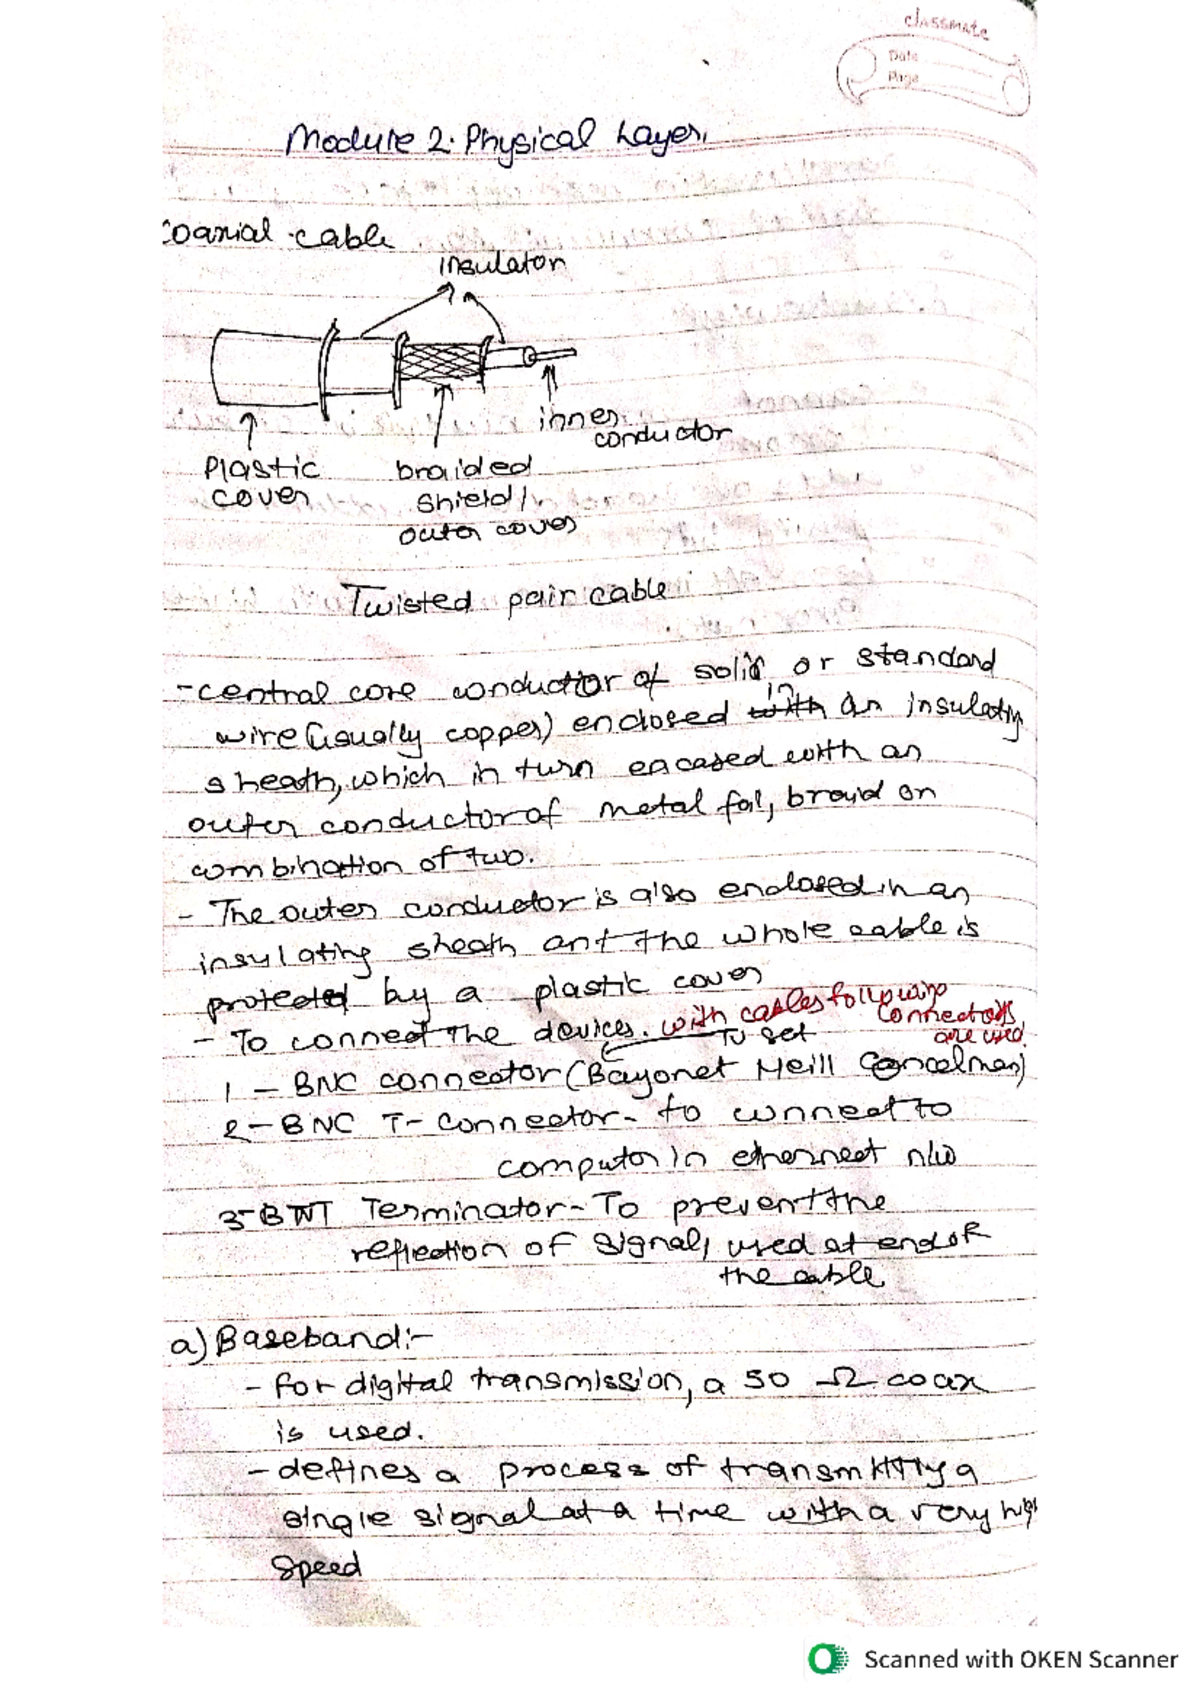 classmate
Date
Page
Module 2. Physical Layer.
coaxial cable
insulator
inner
conductor
Plastic
cover
braided
shield/
outer cover
Twisted pair cable
- central core conductor of solid or standard
in
wire (usually copper) enclosed with an insulating
sheath, which in turn encased with an
outer conductor of metal foil, braid on
combination of two.
- The outer conductor is also enclosed in an
insulating sheath and the whole cable is
protected by a plastic cover
- To connect the devices. with cables following
connectors
are used.
To set
1 - BNC connector (Bayonet Neill Concelman)
2 - BNC T- connector - to connect to
computer in ethernet n/w
3 - BNT Terminator - To prevent the
reflection of signal, used at end of
the cable
a) Baseband:-
- for digital transmission, a 50 Ω coax
is used.
- defines a process of transmitting a
single signal at a time with a very high
speed
Scanned with OKEN Scanner